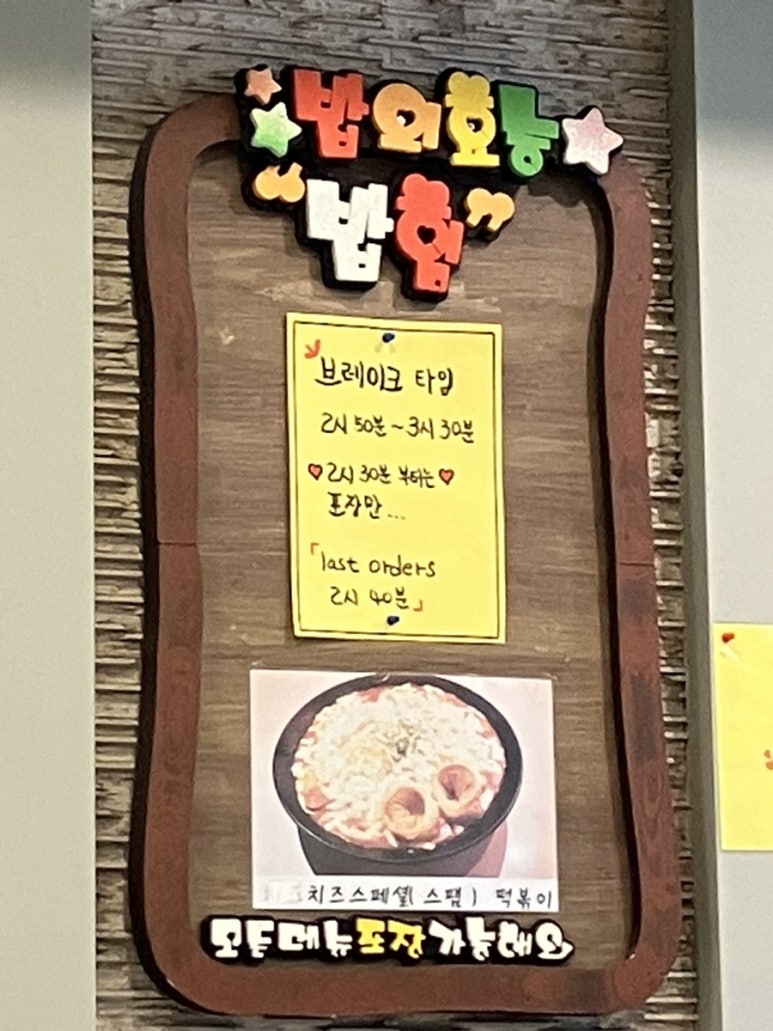 밥의효능
"밥힘"
브레이크 타임
2시 50분 ~ 3시 30분
♥2시 30분 부터는♥
포장만...
「last orders
2시 40분」
치즈스페셜(스팸) 떡볶이
모든메뉴포장가능해요